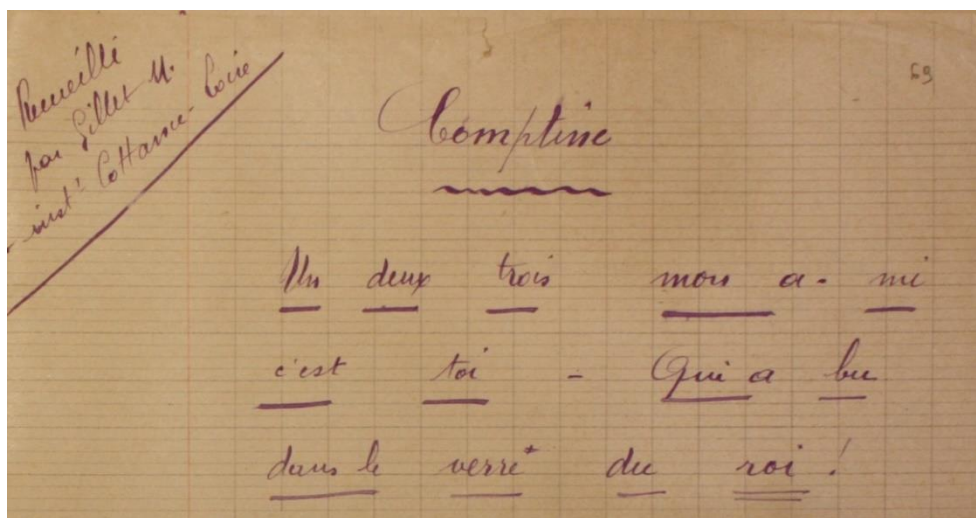 Recueilli
par Gillet M.
inst^r Cottance - Loire
69
Comptine
Un deux trois mon a- mi
c'est toi - Qui a bu
dans le verre* du roi !